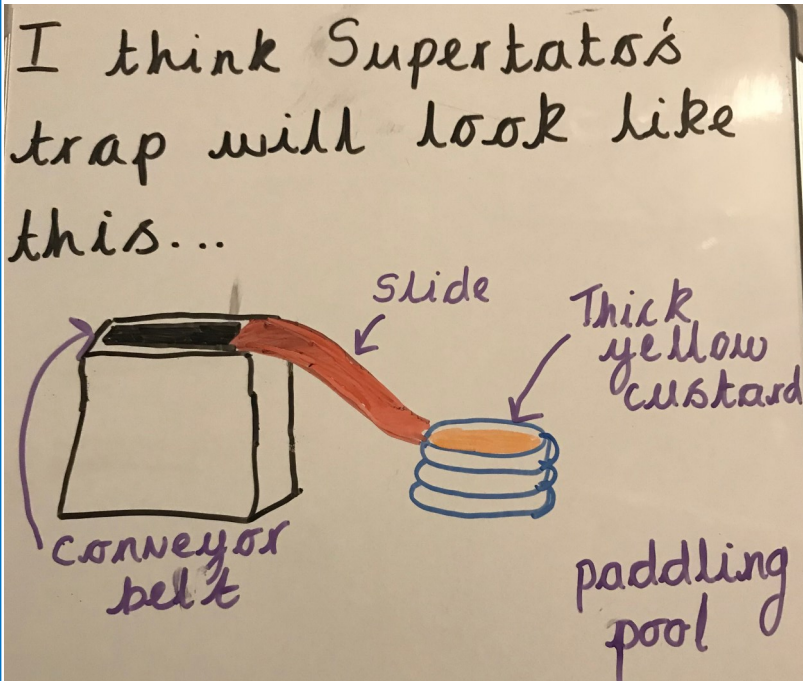 I think Supertato's
trap will look like
this...
Slide
Thick
yellow
custard
conveyor
belt
paddling
pool